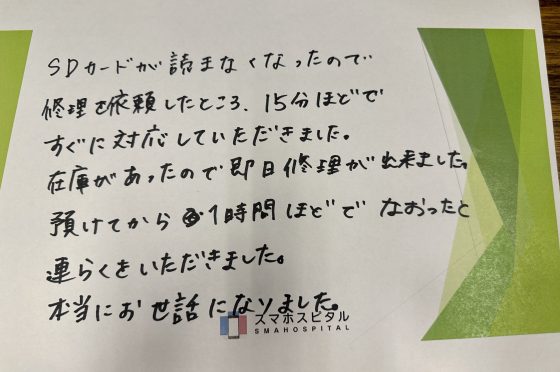 SDカードが読まなくなったので
修理を依頼したところ、15分ほどで
すぐに対応していただきました。
在庫があったので即日修理が出来ました。
預けてから1時間ほどでなおったと
連らくをいただきました。
本当にお世話になりました。
スマホスピタル
SMAHOSPITAL